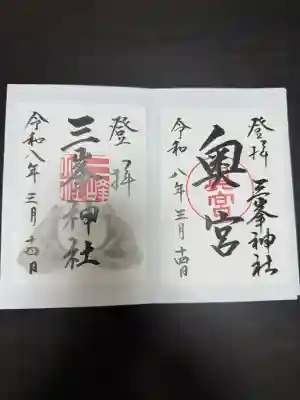 登拝
三峯神社
奥宮
令和八年三月十四日
登拝
三峯神社
令和八年三月十四日